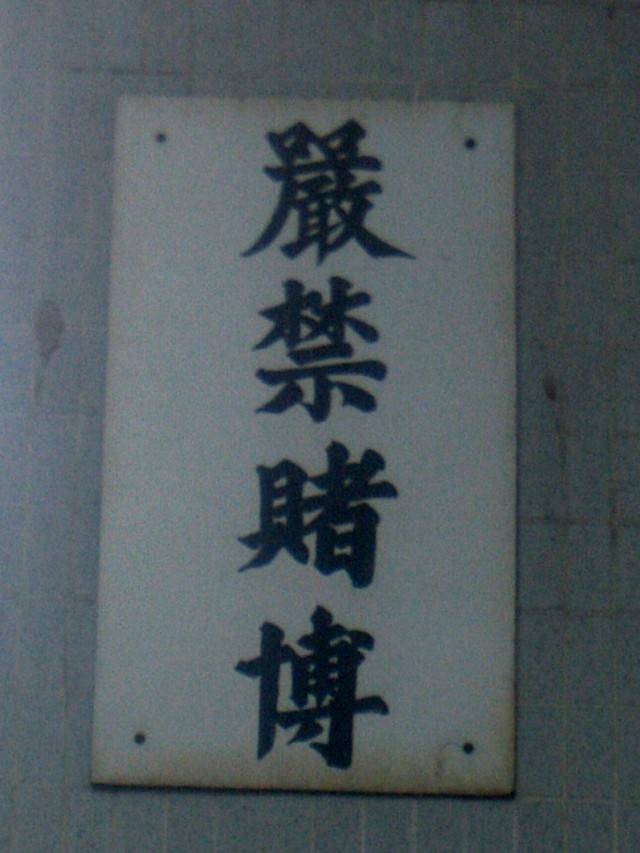 嚴禁賭博